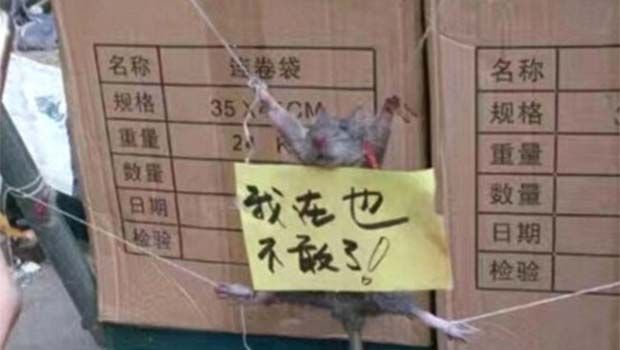 名称 连卷袋
规格 35X45CM
重量
数量
日期
检验
我在也
不敢了!
名称
规格
重量
数量
日期
检验